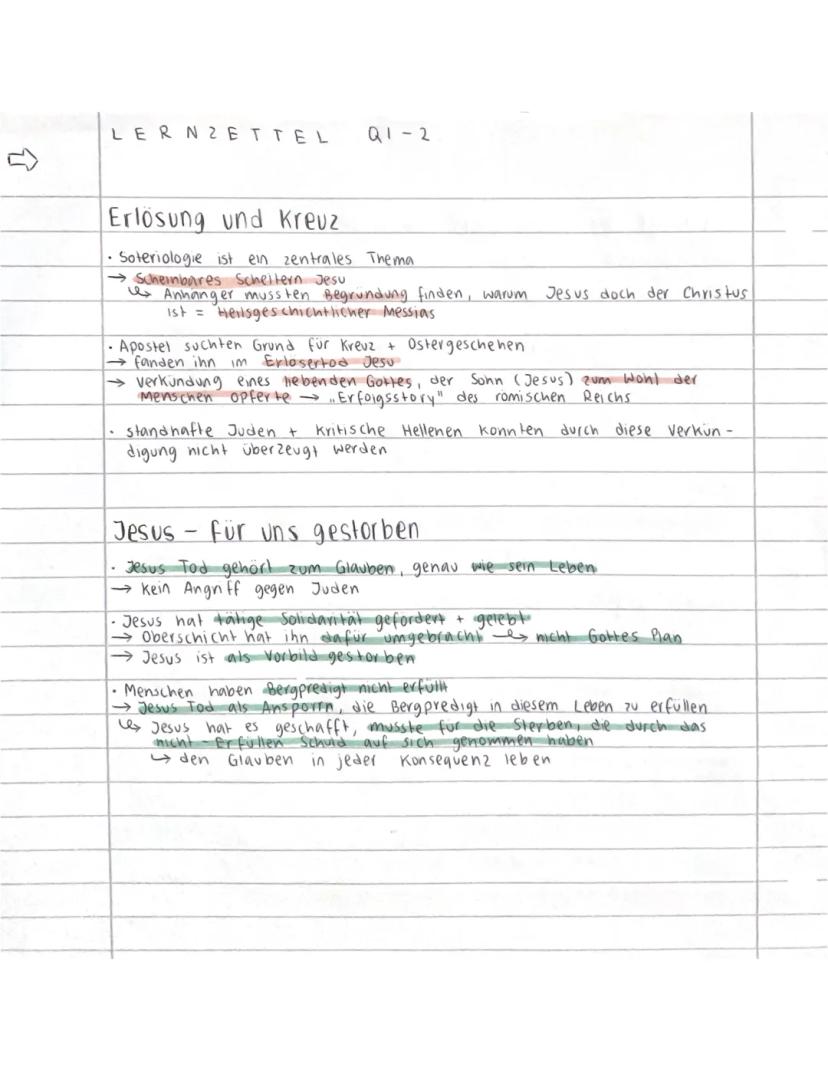 LERNZETTEL Q1-2
Erlösung und Kreuz
· Soteriologie ist ein zentrales Thema
→ Scheinbares Scheitern Jesu
↳ Anhänger mussten Begründung finden, warum Jesus doch der Christus
ist = Heilsgeschichtlicher Messias
· Apostel suchten Grund für Kreuz + Ostergeschehen
→ fanden ihn im Erlösertod Jesu
→ Verkündung eines liebenden Gottes, der Sohn (Jesus) zum Wohl der
Menschen opferte → „Erfolgsstory" des römischen Reichs
· standhafte Juden + kritische Hellenen konnten durch diese Verkün-
digung nicht überzeugt werden
Jesus - für uns gestorben
· Jesus Tod gehört zum Glauben, genau wie sein Leben
→ kein Angriff gegen Juden
· Jesus hat tätige Solidarität gefordert + gelebt
→ Oberschicht hat ihn dafür umgebracht ↳ nicht Gottes Plan
→ Jesus ist als Vorbild gestorben
· Menschen haben Bergpredigt nicht erfüllt
→ Jesus Tod als Ansporrn, die Bergpredigt in diesem Leben zu erfüllen
↳ Jesus hat es geschafft, musste für die Sterben, die durch das
nicht-Erfüllen Schuld auf sich genommen haben
↳ den Glauben in jeder Konsequenz leben